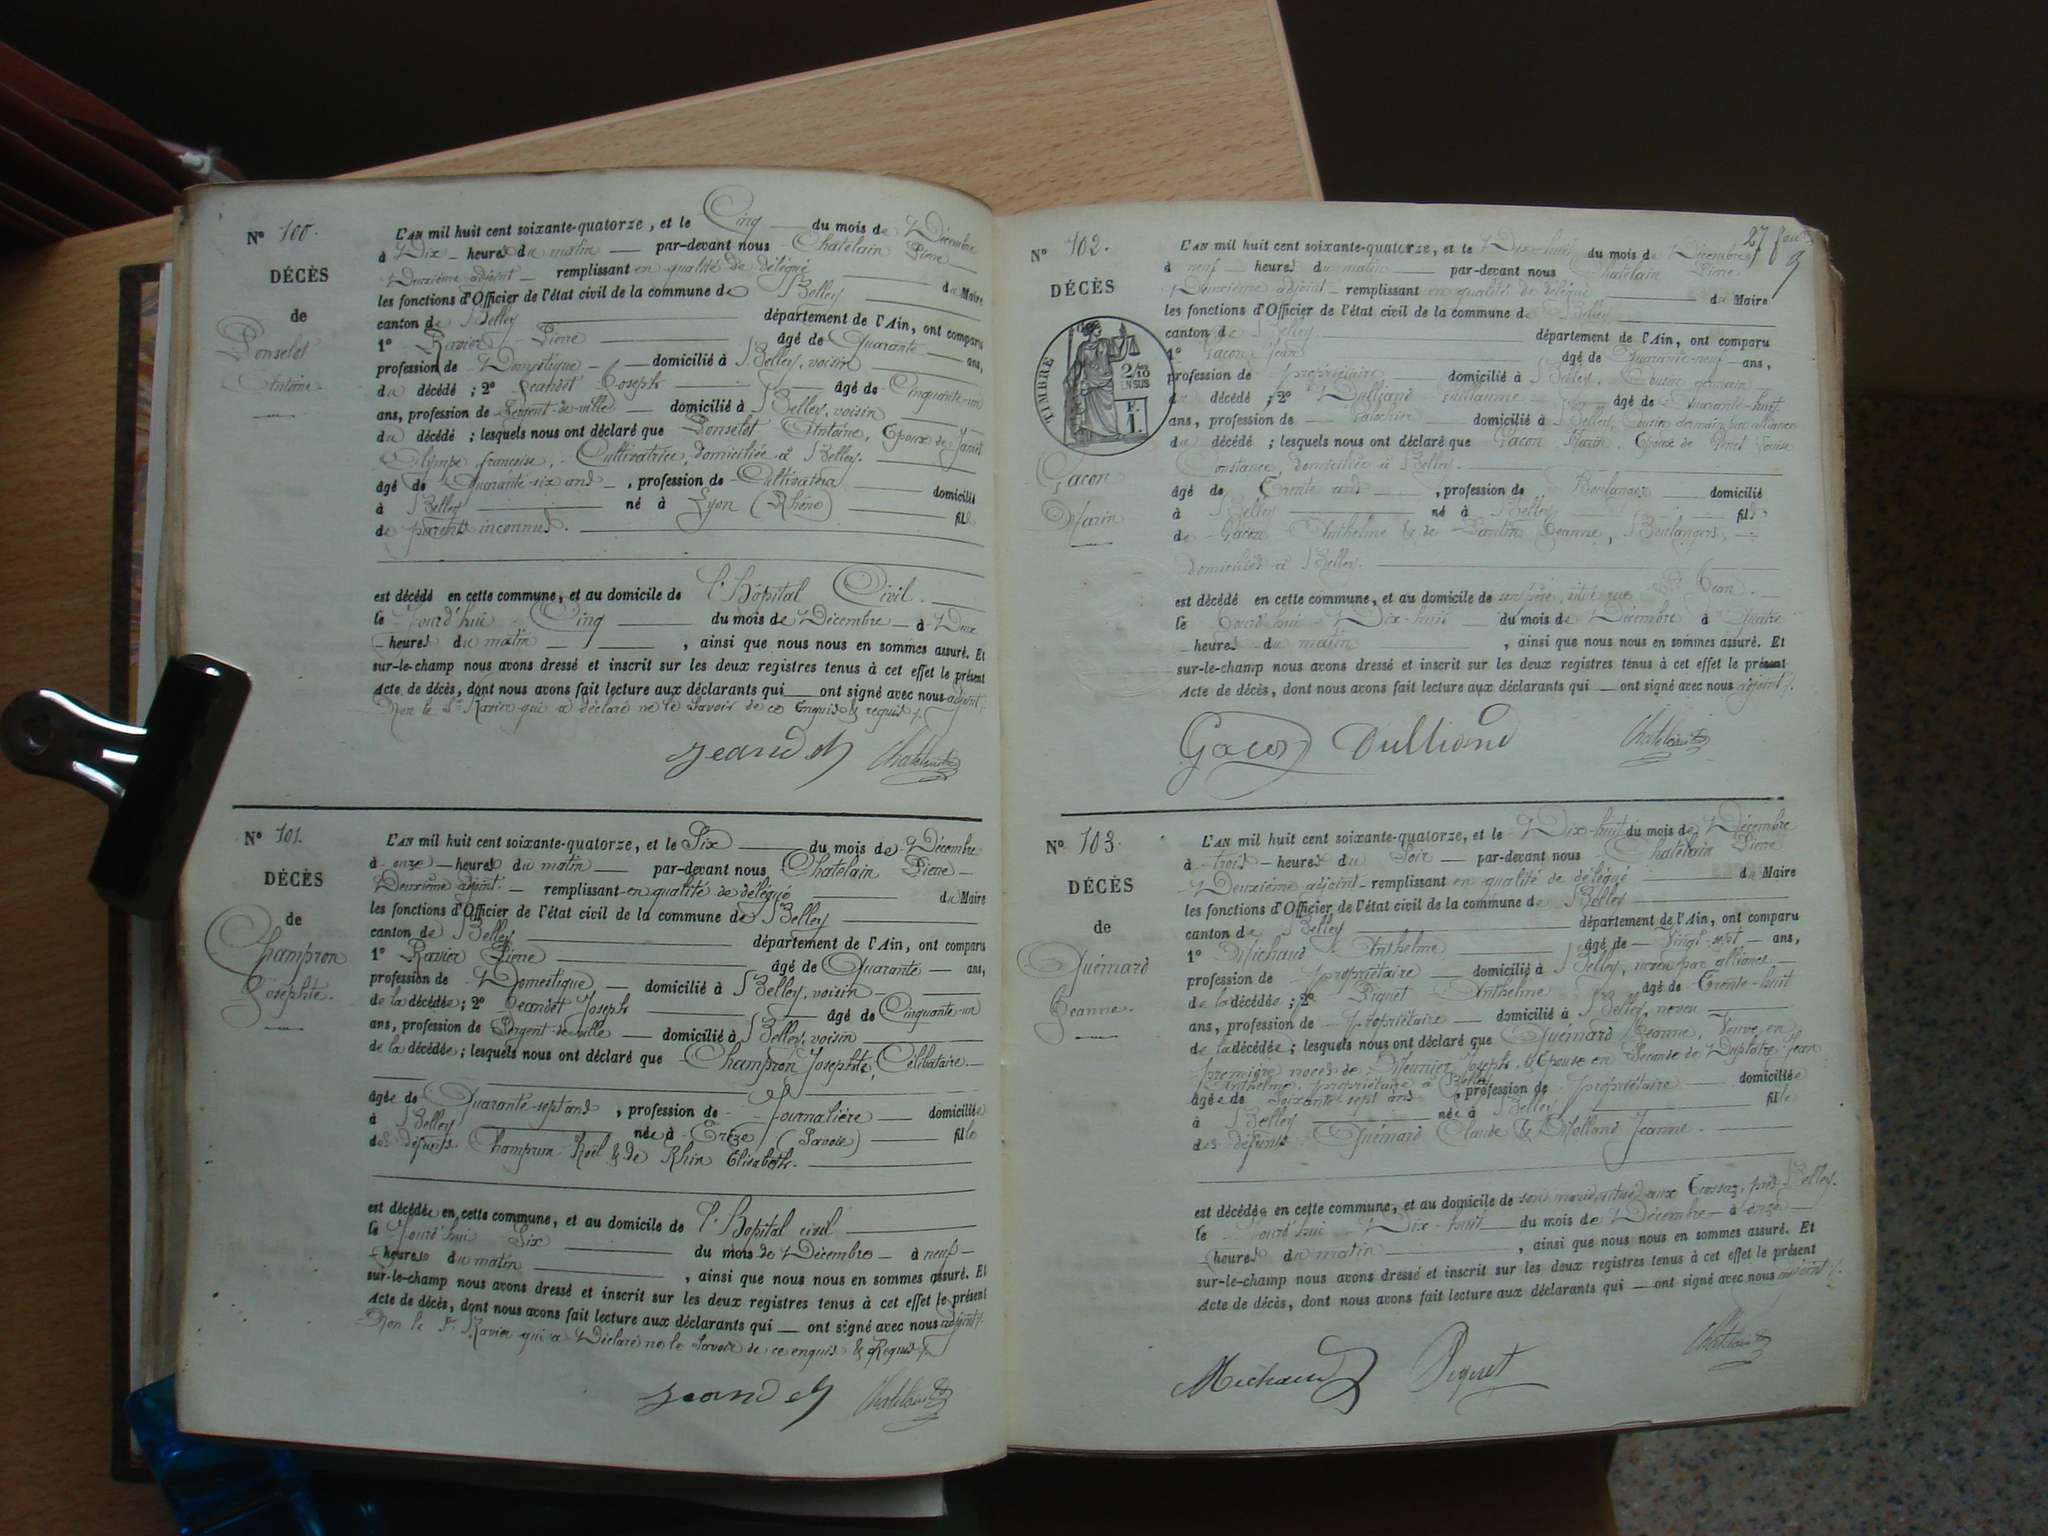 N° 100.
DÉCÈS
de
Ponselet
Antoine
L'AN mil huit cent soixante-quatorze, et le Cinq du mois de Décembre
à Dix heures du matin par-devant nous Chatelain Pierre
Deuxième adjoint remplissant en qualité de délégué du Maire
les fonctions d'Officier de l'état civil de la commune de Belley
canton de Belley département de l'Ain, ont comparu
1° Ravier Pierre âgé de Quarante ans,
profession de Domestique domicilié à Belley, voisin
du décédé ; 2° Jeandet Joseph âgé de Cinquante-un
ans, profession de Sergent-de-ville domicilié à Belley, voisin
du décédé ; lesquels nous ont déclaré que Ponselet Antoine, Epoux de Janet
Olympe françoise, Cultivatrice, domiciliée à Belley.
âgé de Quarante-six ans, profession de Cultivateur domicilié
à Belley né à Lyon (Rhône) fils
de parents inconnus.
est décédé en cette commune, et au domicile de l'hôpital Civil.
le Jourd'hui Cinq du mois de Décembre à Deux
heures du matin, ainsi que nous nous en sommes assuré. Et
sur-le-champ nous avons dressé et inscrit sur les deux registres tenus à cet effet le présent
Acte de décès, dont nous avons fait lecture aux déclarants qui ont signé avec nous adjoint
Non le Sr Ravier qui a déclaré ne le savoir de ce Enquis & requis
Jeandet Chatelain
N° 101.
DÉCÈS
de
Champron
Josephte.
L'AN mil huit cent soixante-quatorze, et le Six du mois de Décembre
à onze heures du matin par-devant nous Chatelain Pierre
Deuxième adjoint remplissant en qualité de délégué du Maire
les fonctions d'Officier de l'état civil de la commune de Belley
canton de Belley département de l'Ain, ont comparu
1° Ravier Pierre âgé de Quarante ans,
profession de Domestique domicilié à Belley, voisin
de la décédée ; 2° Jeandet Joseph âgé de Cinquante-un
ans, profession de Sergent-de-ville domicilié à Belley, voisin
de la décédée ; lesquels nous ont déclaré que Champron Josephte, Célibataire
âgée de Quarante-sept ans, profession de Journalière domiciliée
à Belley née à (Savoie) fille
des défunts Champron Noël & de Rhin Elisabeth.
est décédée en cette commune, et au domicile de l'hôpital civil
le Jourd'hui Six du mois de Décembre à neuf
heures du matin, ainsi que nous nous en sommes assuré. Et
sur-le-champ nous avons dressé et inscrit sur les deux registres tenus à cet effet le présent
Acte de décès, dont nous avons fait lecture aux déclarants qui ont signé avec nous adjoint
Non le Sr Ravier qui a Déclaré ne le Savoir de ce enquis & Requis
Jeandet Chatelain
27
N° 102.
DÉCÈS
de
TIMBRE
2/10 EN SUS
F. 1.
Gacon
Marin
L'AN mil huit cent soixante-quatorze, et le Dix-huit du mois de Décembre
à neuf heures du matin par-devant nous Chatelain Pierre
Deuxième adjoint remplissant en qualité de délégué du Maire
les fonctions d'Officier de l'état civil de la commune de Belley
canton de Belley département de l'Ain, ont comparu
1° Gacon Jean âgé de Quarante-neuf ans,
profession de propriétaire domicilié à Belley, Cousin germain
du décédé ; 2° Dulliand Guillaume âgé de Quarante-huit
ans, profession de domicilié à Belley, Cousin Germain par alliance
du décédé ; lesquels nous ont déclaré que Gacon Marin, Epoux de Louise
Constance, domiciliée à Belley.
âgé de Trente ans, profession de Boulanger domicilié
à Belley né à Belley fils
de Gacon Anthelme & de Jeanne, Boulangers,
domiciliés à Belley.
est décédé en cette commune, et au domicile de son père, situé rue St Jean.
le Jourd'hui Dix-huit du mois de Décembre à Quatre
heures du matin, ainsi que nous nous en sommes assuré. Et
sur-le-champ nous avons dressé et inscrit sur les deux registres tenus à cet effet le présent
Acte de décès, dont nous avons fait lecture aux déclarants qui ont signé avec nous adjoint
Gacon Dulliand Chatelain
N° 103.
DÉCÈS
de
Quémard
Jeanne.
L'AN mil huit cent soixante-quatorze, et le Dix-huit du mois de Décembre
à trois heures du Soir par-devant nous Chatelain Pierre
Deuxième adjoint remplissant en qualité de délégué du Maire
les fonctions d'Officier de l'état civil de la commune de Belley
canton de Belley département de l'Ain, ont comparu
1° Michaud Anthelme âgé de Vingt-sept ans,
profession de propriétaire domicilié à Belley, neveu par alliance
de la décédée ; 2° Piquet Anthelme âgé de Trente-huit
ans, profession de Propriétaire domicilié à Belley, neveu
de la décédée ; lesquels nous ont déclaré que Quémard Jeanne, Veuve en
première noces de Meunier Joseph, & Epouse en Seconde de Duplatre Jean
Anthelme, propriétaire à Belley
âgée de Soixante-sept ans, profession de propriétaire domiciliée
à Belley née à Belley fille
des défunts Quémard Claude & Molland Jeanne.
est décédée en cette commune, et au domicile de son mari situé aux près Belley.
le Jourd'hui Dix-huit du mois de Décembre à onze
heures du matin, ainsi que nous nous en sommes assuré. Et
sur-le-champ nous avons dressé et inscrit sur les deux registres tenus à cet effet le présent
Acte de décès, dont nous avons fait lecture aux déclarants qui ont signé avec nous adjoint
Michaud Piquet Chatelain